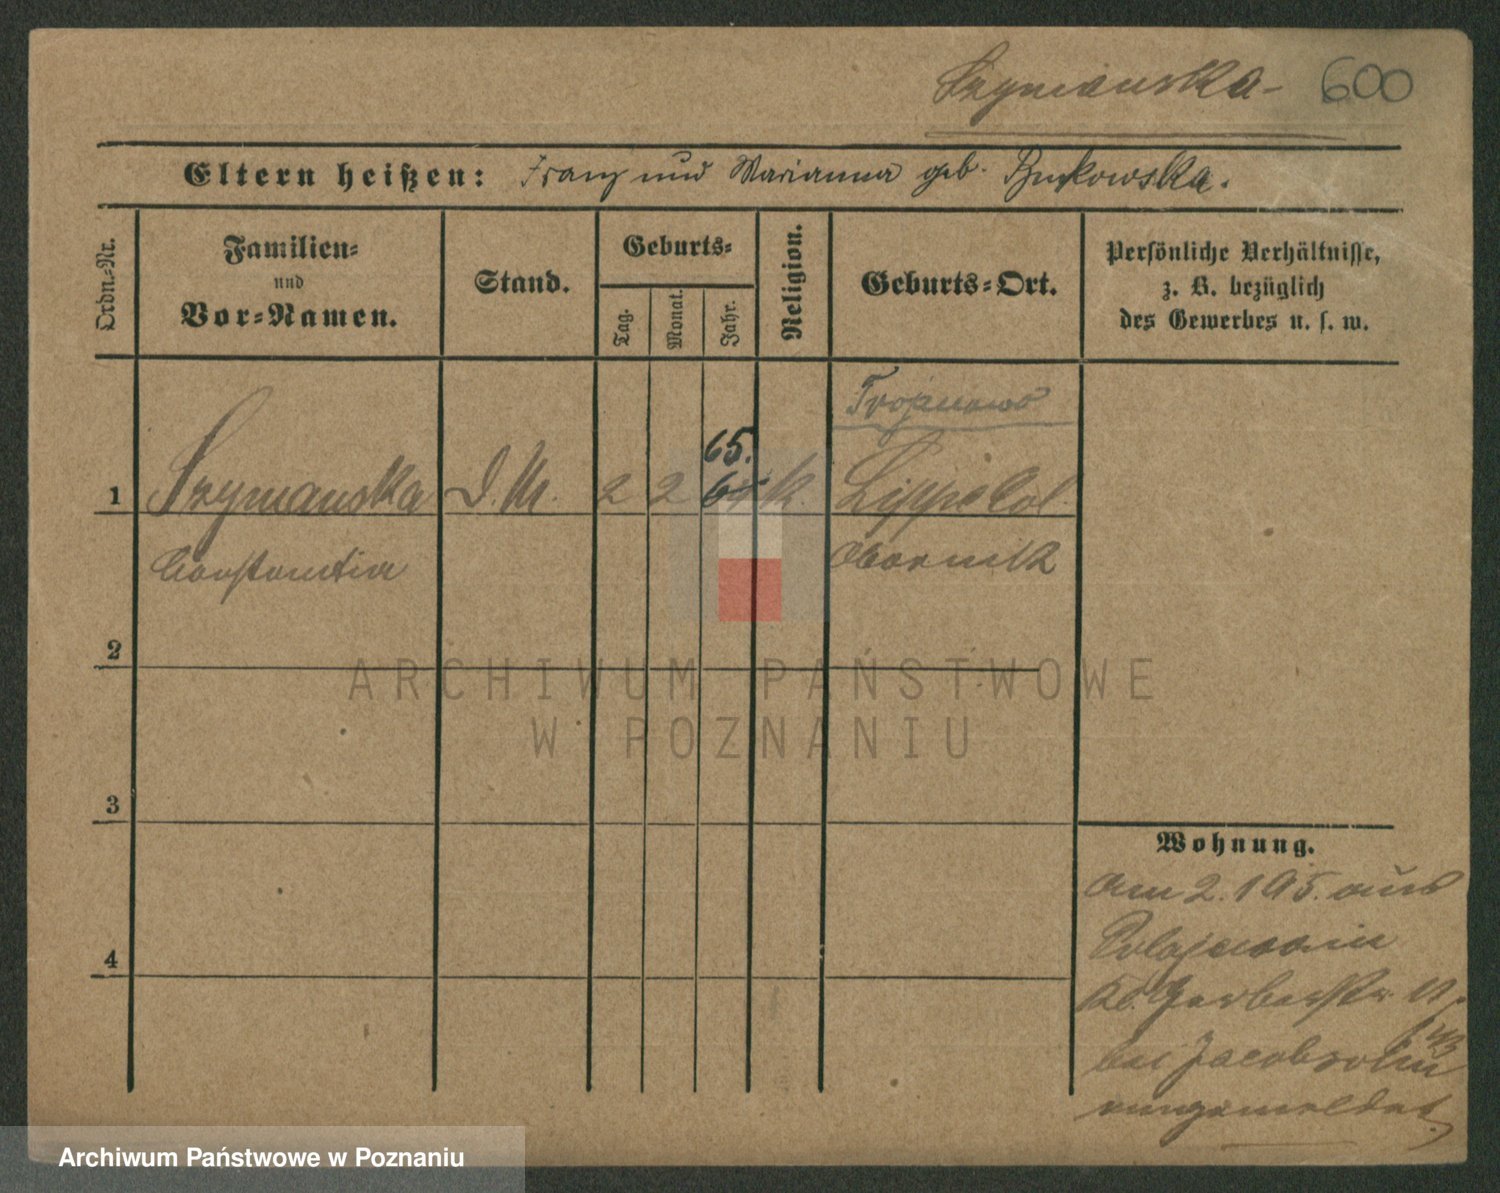 Szymanska 600
Eltern heißen: Franz und Marianna geb.
Ordn.-Nr.
Familien-
und
Vor-Namen.
Stand.
Geburts-
Tag.
Monat.
Jahr.
Religion.
Geburts-Ort.
Persönliche Verhältnisse,
z. B. bezüglich
des Gewerbes u. s. w.
Trojanowo
65.
1 Szymanska D. M. 2 2 64 K. Lippe Col.
Constantia Obornik
2
3
4
Wohnung.
Am 2.1 95. aus
Polajewo in
Kl. Gerberstr. 11.
bei Jacobsohn
angemeldet.
ARCHIWUM PAŃSTWOWE
W POZNANIU
Archiwum Państwowe w Poznaniu